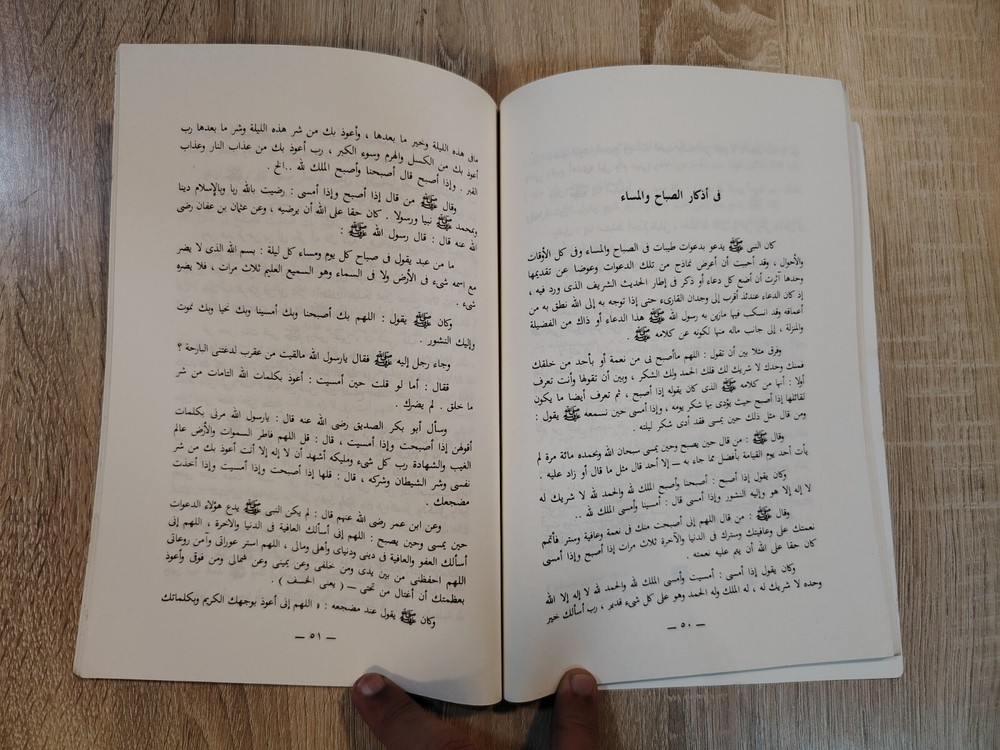 فى أذكار الصباح والمساء
كان النبى ﷺ يدعو بدعوات طيبات فى الصباح والمساء وفى كل الأوقات
والأحوال ، وقد أحببت أن أعرض نماذج من تلك الدعوات وعوضا عن تقديمها
وحدها آثرت أن أضع كل دعاء أو ذكر فى إطار الحديث الشريف الذى ورد فيه ،
إذ كان الدعاء عندئذ أقرب إلى وجدان القارىء حتى إذا توجه به إلى الله نطق به من
أعماقه وقد انسكب فيها مازين به رسول الله ﷺ هذا الدعاء أو ذاك من الفضيلة
والمنزلة ، إلى جانب ماله منها لكونه عن كلامه ﷺ .
وفرق مثلا بين أن تقول : اللهم ماأصبح بى من نعمة أو بأحد من خلقك
فمنك وحدك لا شريك لك فلك الحمد ولك الشكر ، وبين أن تقولها وأنت تعرف
أولا : أنها من كلامه ﷺ الذى كان يقوله إذا أصبح ، ثم تعرف أيضا ما يكون
لقائلها إذا أصبح حيث يؤدى بها شكر يومه ، وإذا أمسى حين نسمعه ﷺ يقول :
ومن قال مثل ذلك حين يمسى فقد أدى شكر ليلته .
وقال ﷺ : من قال حين يصبح وحين يمسى سبحان الله وبحمده مائة مرة لم
يأت أحد يوم القيامة بأفضل مما جاء به — إلا أحد قال مثل ما قال أو زاد عليه .
وكان يقول إذا أصبح : أصبحنا وأصبح الملك لله والحمد لله لا شريك له
لا إله إلا هو وإليه النشور وإذا أمسى قال : أمسينا وأمسى الملك لله ..
وقال ﷺ : من قال اللهم إنى أصبحت منك فى نعمة وعافية وستر فأتمم
نعمتك على وعافيتك وسترك فى الدنيا والآخرة ثلاث مرات إذا أصبح وإذا أمسى
كان حقا على الله أن يتم عليه نعمته .
وكان يقول إذا أمسى : أمسيت وأمسى الملك لله والحمد لله لا إله إلا الله
وحده لا شريك له ، له الملك وله الحمد وهو على كل شىء قدير ، رب أسألك خير
— ٥٠ —
مافى هذه الليلة وخير ما بعدها ، وأعوذ بك من شر هذه الليلة وشر ما بعدها رب
أعوذ بك من الكسل والهرم وسوء الكبر ، رب أعوذ بك من عذاب النار وعذاب
القبر . وإذا أصبح قال أصبحنا وأصبح الملك لله ..الخ .
وقال ﷺ من قال إذا أصبح وإذا أمسى : رضيت بالله ربا وبالإسلام دينا
وبمحمد ﷺ نبيا ورسولا . كان حقا على الله أن يرضيه ، وعن عثمان بن عفان رضى
الله عنه قال : قال رسول الله ﷺ :
ما من عبد يقول فى صباح كل يوم ومساء كل ليلة : بسم الله الذى لا يضر
مع اسمه شىء فى الأرض ولا فى السماء وهو السميع العليم ثلاث مرات ، فلا يضره
شىء .
وكان ﷺ يقول : اللهم بك أصبحنا وبك أمسينا وبك نحيا وبك نموت
وإليك النشور .
وجاء رجل إليه ﷺ فقال يارسول الله مالقيت من عقرب لدغتنى البارحة ؟
فقال : أما لو قلت حين أمسيت : أعوذ بكلمات الله التامات من شر
ما خلق . لم يضرك .
وسأل أبو بكر الصديق رضى الله عنه قال : يارسول الله مرنى بكلمات
أقولهن إذا أصبحت وإذا أمسيت ، قال : قل اللهم فاطر السموات والأرض عالم
الغيب والشهادة رب كل شىء ومليكه أشهد أن لا إله إلا أنت أعوذ بك من شر
نفسى وشر الشيطان وشركه ، قال : قلها إذا أصبحت وإذا أمسيت وإذا أخذت
مضجعك .
وعن ابن عمر رضى الله عنهم قال : لم يكن النبى ﷺ يدع هؤلاء الدعوات
حين يمسى وحين يصبح : اللهم إنى أسألك العافية فى الدنيا والآخرة ، اللهم إنى
أسألك العفو والعافية فى دينى ودنياى وأهلى ومالى ، اللهم استر عوراتى وآمن روعاتى
اللهم احفظنى من بين يدى ومن خلفى وعن يمينى وعن شمالى ومن فوقى وأعوذ
بعظمتك أن أغتال من تحتى — ( يعنى الخسف ) .
وكان ﷺ يقول عند مضجعه : « اللهم إنى أعوذ بوجهك الكريم وبكلماتك
— ٥١ —